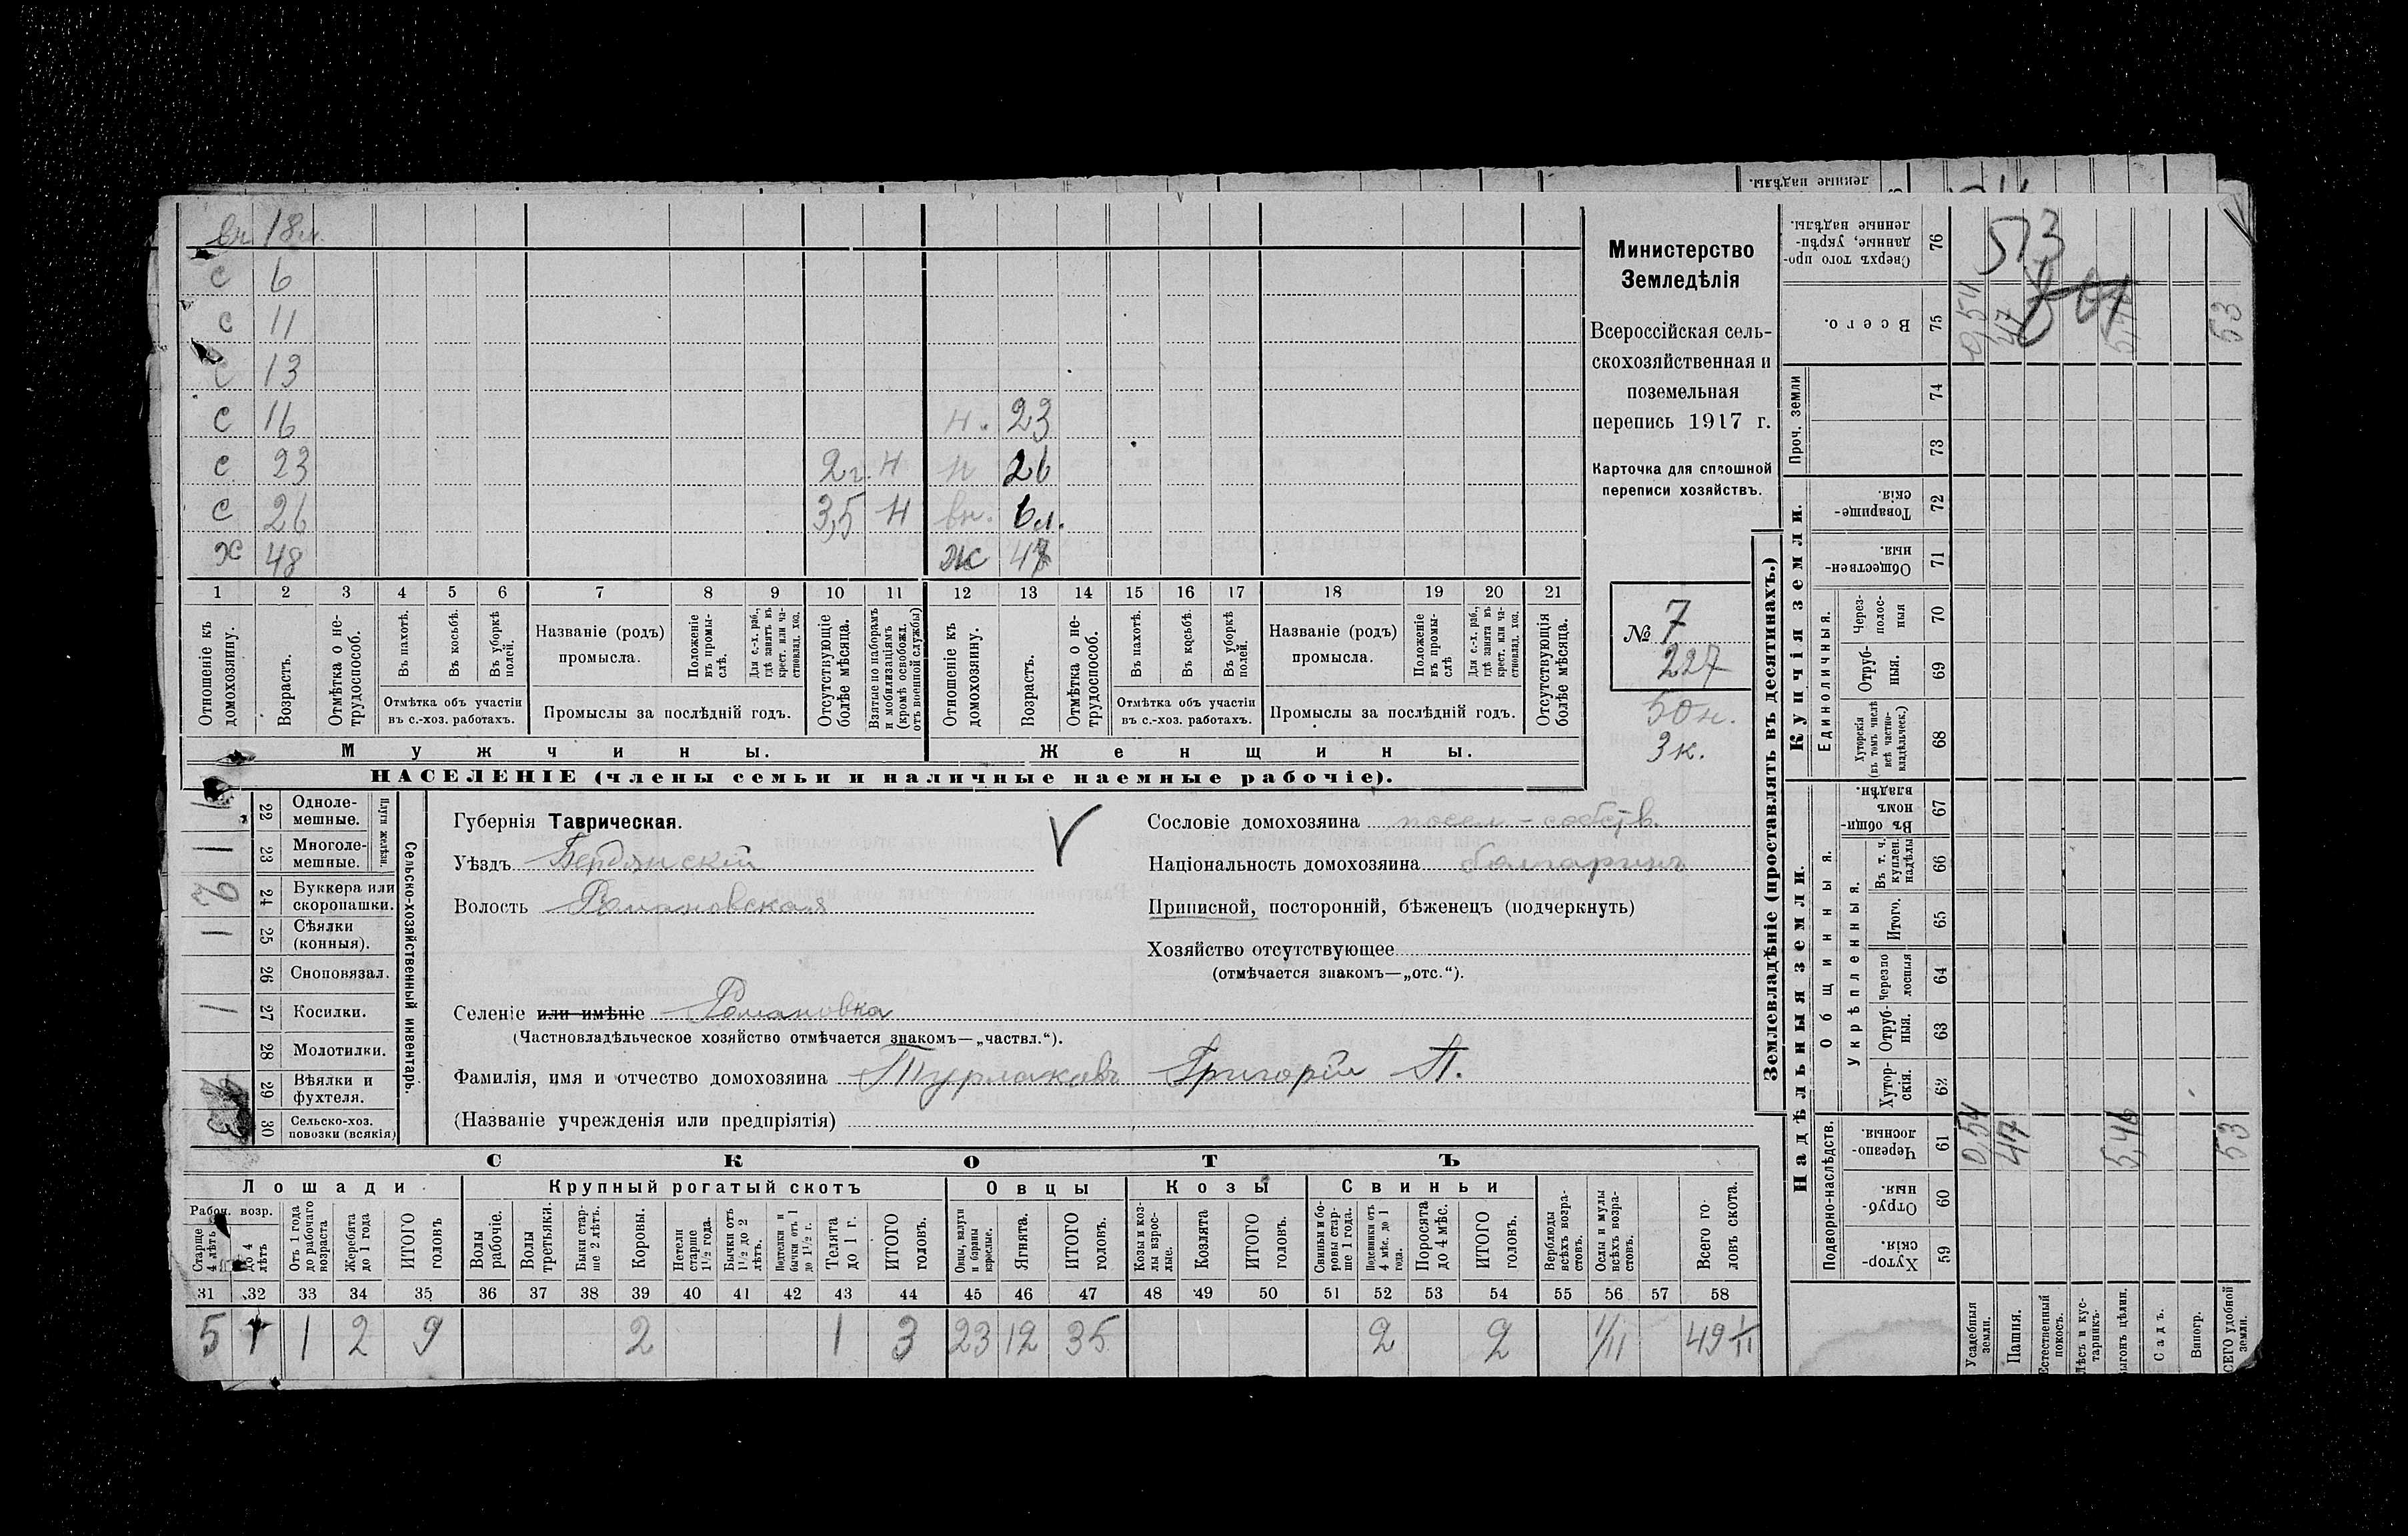 вн 18м.
с 6
с 11
с 13
с 16 н. 23
с 23 2г. Н н 26
с 26 3,5 Н вн. 6м.
х 48 ж 47
1 2 3 4 5 6 7 8 9 10 11 12 13 14 15 16 17 18 19 20 21
Отношеніе къ домохозяину.
Возрастъ.
Отмѣтка о не-трудоспособ.
Въ пахотѣ.
Въ косьбѣ.
Въ уборкѣ полей.
Отмѣтка объ участіи въ с.-хоз. работахъ.
Названіе (родъ) промысла.
Положеніе въ промы-слѣ.
Для с.-х. раб., гдѣ занятъ въ крест. или ча-стновлад. хоз.
Промыслы за послѣдній годъ.
Отсутствующіе болѣе мѣсяца.
Взятые по наборамъ и мобилизаціямъ (кромѣ освобожд. отъ военной службы)
Отношеніе къ домохозяину.
Возрастъ.
Отмѣтка о не-трудоспособ.
Въ пахотѣ.
Въ косьбѣ.
Въ уборкѣ полей.
Отмѣтка объ участіи въ с.-хоз. работахъ.
Названіе (родъ) промысла.
Положеніе въ промы-слѣ
Для с.-х. раб., гдѣ занята въ крест. или ча-стновлад. хоз.
Промыслы за послѣдній годъ.
Отсутствующія болѣе мѣсяца.
Мужчины. Женщины.
НАСЕЛЕНІЕ (члены семьи и наличные наемные рабочіе).
Министерство
Земледѣлія
Всероссійская сель-
скохозяйственная и
поземельная
перепись 1917 г.
Карточка для сплошной
переписи хозяйствъ.
№ 7
227
50н.
3к.
1 22 Одноле-мешные.
1 23 Многоле-мешные.
Плуги желѣзн.
24 Буккера или скоропашки.
1 25 Сѣялки (конныя).
26 Сноповязал.
1 27 Косилки.
28 Молотилки.
29 Вѣялки и фухтеля.
3 30 Сельско-хоз. повозки (всякія)
Сельско-хозяйственный инвентарь.
Губернія Таврическая.
Уѣздъ Бердянскій
Волость Романовская
Селеніе или имѣніе Романовка
(Частновладѣльческое хозяйство отмѣчается знакомъ—„частвл.“).
Фамилія, имя и отчество домохозяина Турлаковъ Григорій П.
(Названіе учрежденія или предпріятія)
Сословіе домохозяина посел-собств.
Національность домохозяина болгаринъ
Приписной, посторонній, бѣженецъ (подчеркнуть)
Хозяйство отсутствующее
(отмѣчается знакомъ—„отс.“).
СКОТЪ
Лошади Крупный рогатый скотъ Овцы Козы Свиньи
Рабоч. возр.
Старше 4 лѣтъ
до 4 лѣтъ
Отъ 1 года до рабочаго возраста
Жеребята до 1 года
ИТОГО головъ
Волы рабочіе.
Волы третьяки.
Быки стар-ше 2 лѣтъ.
Коровы.
Нетели старше 1½ года.
Бычки отъ 1½ до 2 лѣтъ.
Нетелки и бычки отъ 1 до 1½ г.
Телята до 1 г.
ИТОГО головъ.
Овцы, валухи и бараны взрослые.
Ягнята.
ИТОГО головъ.
Козы и коз-лы взрос-лые.
Козлята
ИТОГО головъ.
Свиньи и бо-ровы стар-ше 1 года.
Подсвинки отъ 4 мѣс. до 1 года.
Поросята до 4 мѣс.
ИТОГО головъ.
Верблюды всѣхъ возра-стовъ.
Ослы и мулы всѣхъ возра-стовъ.
Всего го-ловъ скота.
31 32 33 34 35 36 37 38 39 40 41 42 43 44 45 46 47 48 49 50 51 52 53 54 55 56 57 58
5 1 1 2 9 2 1 3 23 12 35 2 2 1/11 49 1/11
Землевладѣніе (проставлять въ десятинахъ.)
Купчія земли.
Надѣльныя земли.
Сверхъ того про-данные, укрѣп-ленные надѣлы. 76
Всего. 75 0,54 47 53
Проч. земли 74 73
Товарище-скія. 72
Обществен-ныя. 71
Единоличныя.
Через-полос-ныя 70
Отруб-ныя. 69
Хуторскія (въ томъ числѣ всѣ частно-владѣльческ.) 68
Общинныя.
Въ общин-номъ владѣн. 67
Укрѣпленныя.
Въ т. ч. куплен. надѣлы 66
Итого. 65
Черезпо лосныя 64
Отруб-ныя. 63
Хутор-скія. 62
Подворно-наслѣдств.
Черезпо-лосныя. 61 0,54 47 5,46 53
Отруб-ныя. 60
Хутор-скія. 59
Усадебныя земли.
Пашня.
Естественный покосъ.
Лѣсъ и кус-тарникъ.
ыгонъ цѣлин.
Садъ.
Виногр.
СЕГО удобной земли.
513